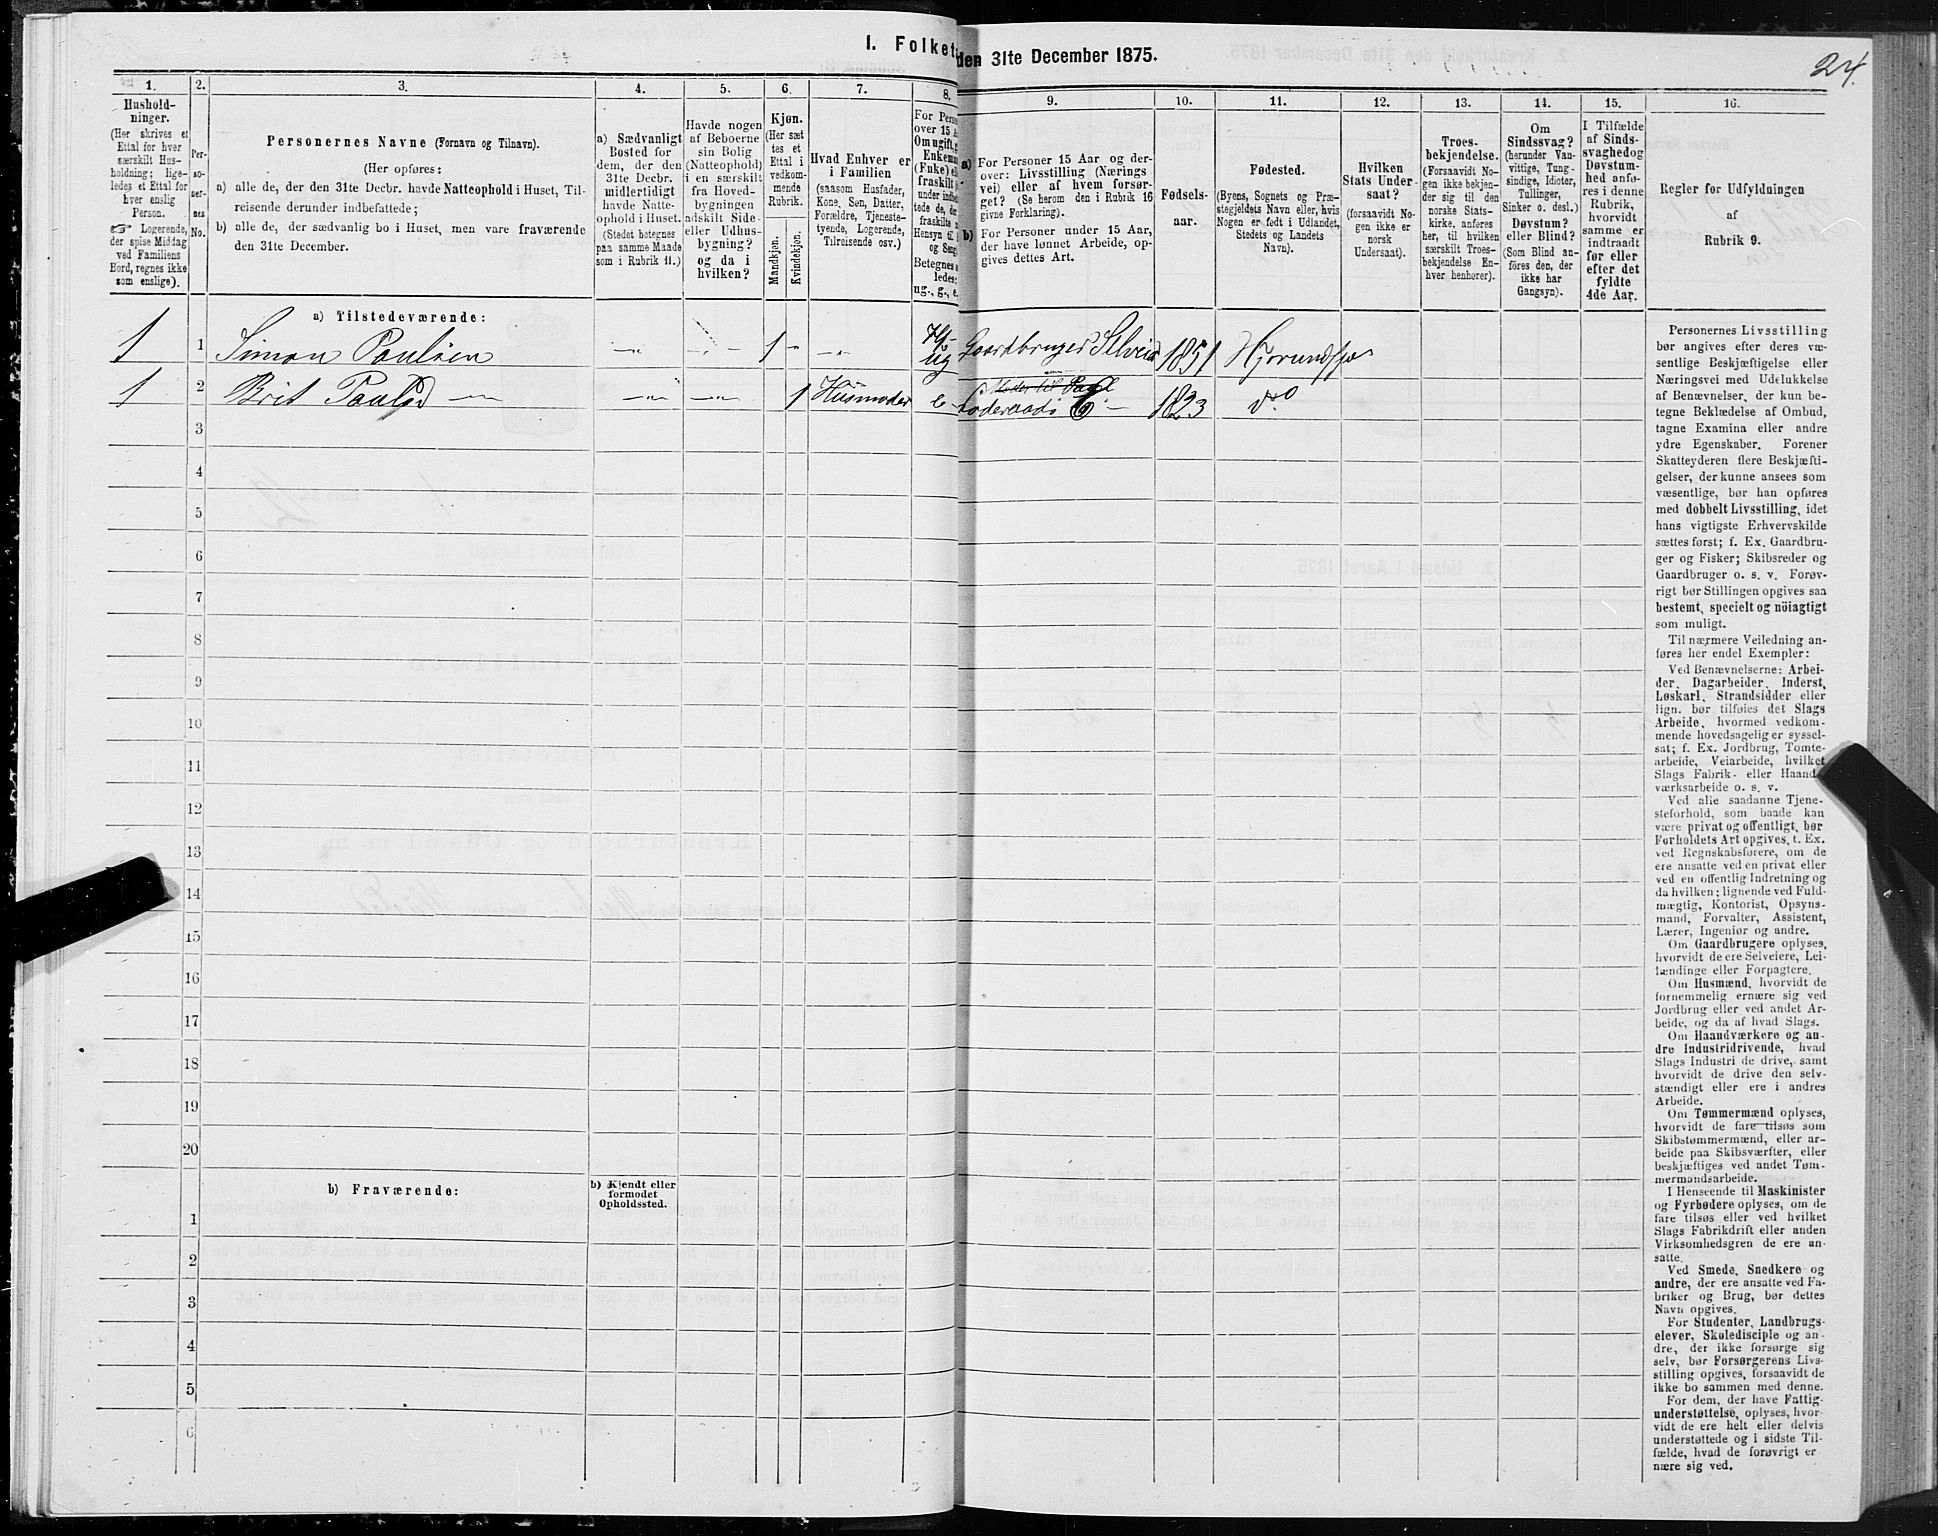 I. Folket
den 31te December 1875.
24.
1.
Hushold-
ninger.
(Her skrives et
Ettal for hver
særskilt Hus-
holdning; lige-
ledes et Ettal for
hver enslig
Person.
☞ Logerende,
der spise Middag
ved Familiens
Bord, regnes ikke
som enslige).
2.
Per-
so-
ner-
nes
No.
3.
Personernes Navne (Fornavn og Tilnavn).
(Her opføres:
a) alle de, der den 31te Decbr. havde Natteophold i Huset, Til-
reisende derunder indbefattede;
b) alle de, der sædvanlig bo i Huset, men vare fraværende
den 31te December.
4.
a) Sædvanligt
Bosted for
dem, der den
31te Decbr.
midlertidigt
havde Natte-
ophold i Huset.
(Stedet betegnes
paa samme Maade
som i Rubrik 11.)
5.
Havde nogen
af Beboerne
sin Bolig
(Natteophold)
i en særskilt
fra Hoved-
bygningen
adskilt Side-
eller Udhus-
bygning?
og da i
hvilken?
6.
Kjøn.
(Her sæt
tes et
Ettal i
vedkom-
mende
Rubrik.
Mandkjøn.
Kvindekjøn.
7.
Hvad Enhver er
i Familien
(saasom Husfader,
Kone, Søn, Datter,
Forældre, Tjeneste-
tyende, Logerende,
Tilreisende osv.)
8.
For Pers
over 15 A
Om ugift, g
Enkema
(Fnke) el
fraskilt
under indb
tede de, de
fraskilte
Hensyn til
og Seng
Betegnes s
ledes:
ug., g., e,
9.
a) For Personer 15 Aar og der-
over: Livsstilling (Nærings
vei) eller af hvem forsør-
get? (Se herom den i Rubrik 16
givne Forklaring).
b) For Personer under 15 Aar,
der have lønnet Arbeide, op-
gives dettes Art.
10.
Fødsels-
aar.
11.
Fødested.
(Byens, Sognets og Præ-
stegjeldets Navn eller, hvis
Nogen er født i Udlandet,
Stedets og Landets
Navn).
12.
Hvilken
Stats Under-
saat?
(forsaavidt No-
gen ikke er
norsk
Undersaat).
13.
Troes-
bekjendelse.
(Forsaavidt No-
gen ikke bekjen-
der sig til den
norske Stats-
kirke, anføres
her, til hvilken
særskilt Troes-
bekjendelse En-
hver henhører).
14.
Om
Sindssvag?
(herunder Van-
vittige, Tung-
sindige, Idioter,
Tullinger,
Sinker o. desl.)
Døvstum?
eller Blind?
(Som Blind an-
føres den, der
ikke har
Gangsyn).
15.
I Tilfælde
af Sinds-
svaghed og
Døvstum-
hed anfø-
res i denne
Rubrik,
hvorvidt
samme er
indtraadt
før eller
efter det
fyldte
4de Aar.
16.
Regler for Udfyldningen
af
Rubrik 9.
a) Tilstedeværende:
1 1 Simon Paulsen 1 ug Gaardbruger Selveier 1851
1 2 Brit Paulsd 1 Husmoder e Føderaads 1823 do
3
4
5
6
7
8
9
10
11
12
13
14
15
16
17
18
19
20
b) Fraværende:
b) Kjendt eller
formodet
Opholdssted.
1
2
3
4
5
6
Personernes Livsstilling
bør angives efter deres væ-
sentlige Beskjæftigelse eller
Næringsvei med Udelukkelse
af Benævnelser, der kun be-
tegne Beklædelse af Ombud,
tagne Examina eller andre
ydre Egenskaber. Forener
Skatteyderen flere Beskjæfti-
gelser, der kunne ansees som
væsentlige, bør han opføres
med dobbelt Livsstilling, idet
hans vigtigste Erhvervskilde
sættes først; f. Ex. Gaardbru-
ger og Fisker; Skibsreder og
Gaardbruger o. s. v. Forøv-
rigt bør Stillingen opgives saa
bestemt, specielt og nöiagtigt
som muligt.
Til nærmere Veiledning an-
føres her endel Exempler:
Ved Benævnelserne: Arbei-
der, Dagarbeider, Inderst,
Løskarl, Strandsidder eller
lign. bør tilføies det Slags
Arbeide, hvormed vedkom-
mende hovedsagelig er syssel-
sat; f. Ex. Jordbrug, Tomte-
arbeide, Veiarbeide, hvilket
Slags Fabrik- eller Haand-
værksarbeide o. s. v.
Ved alle saadanne Tjene-
steforhold, som baade kan
være privat og offentligt, bør
Forholdets Art opgives, t. Ex.
ved Regnskabsførere, om de
ere ansatte ved en privat eller
ved en offentlig Indretning og
da hvilken; lignende ved Fuld-
mægtig, Kontorist, Opsyns-
mand, Forvalter, Assistent,
Lærer, Ingeniør og andre.
Om Gaardbrugere oplyses,
hvorvidt de ere Selveiere, Lei-
lændinge eller Forpagtere.
Om Husmænd, hvorvidt de
fornemmelig ernære sig ved
Jordbrug eller ved andet Ar-
beide, og da af hvad Slags.
Om Haandværkere og an-
dre Industridrivende, hvad
Slags Industri de drive, samt
hvorvidt de drive den selv-
stændigt eller ere i andres
Arbeide.
Om Tømmermænd oplyses,
hvorvidt de fare tilsøs som
Skibstømmermænd, eller ar-
beide paa Skibsværfter, eller
beskjæftiges ved andet Tøm-
mermandsarbeide.
I Henseende til Maskinister
og Fyrbødere oplyses, om de
fare tilsøs eller ved hvilket
Slags Fabrikdrift eller anden
Virksomhedsgren de ere an-
satte.
Ved Smede, Snedkere og
andre, der ere ansatte ved Fa-
briker og Brug, bør dettes
Navn opgives.
For Studenter, Landbrugs-
elever, Skoledisciple og an-
dre, der ikke forsørge sig
selv, bør Forsørgerens Livs-
stilling opgives, forsaavidt de
ikke bo sammen med denne.
For dem, der have Fattig-
understøttelse, oplyses, hvor-
vidt de ere helt eller delvis
understøttede og i sidste Til-
fælde, hvad de forøvrigt er
nære sig ved.